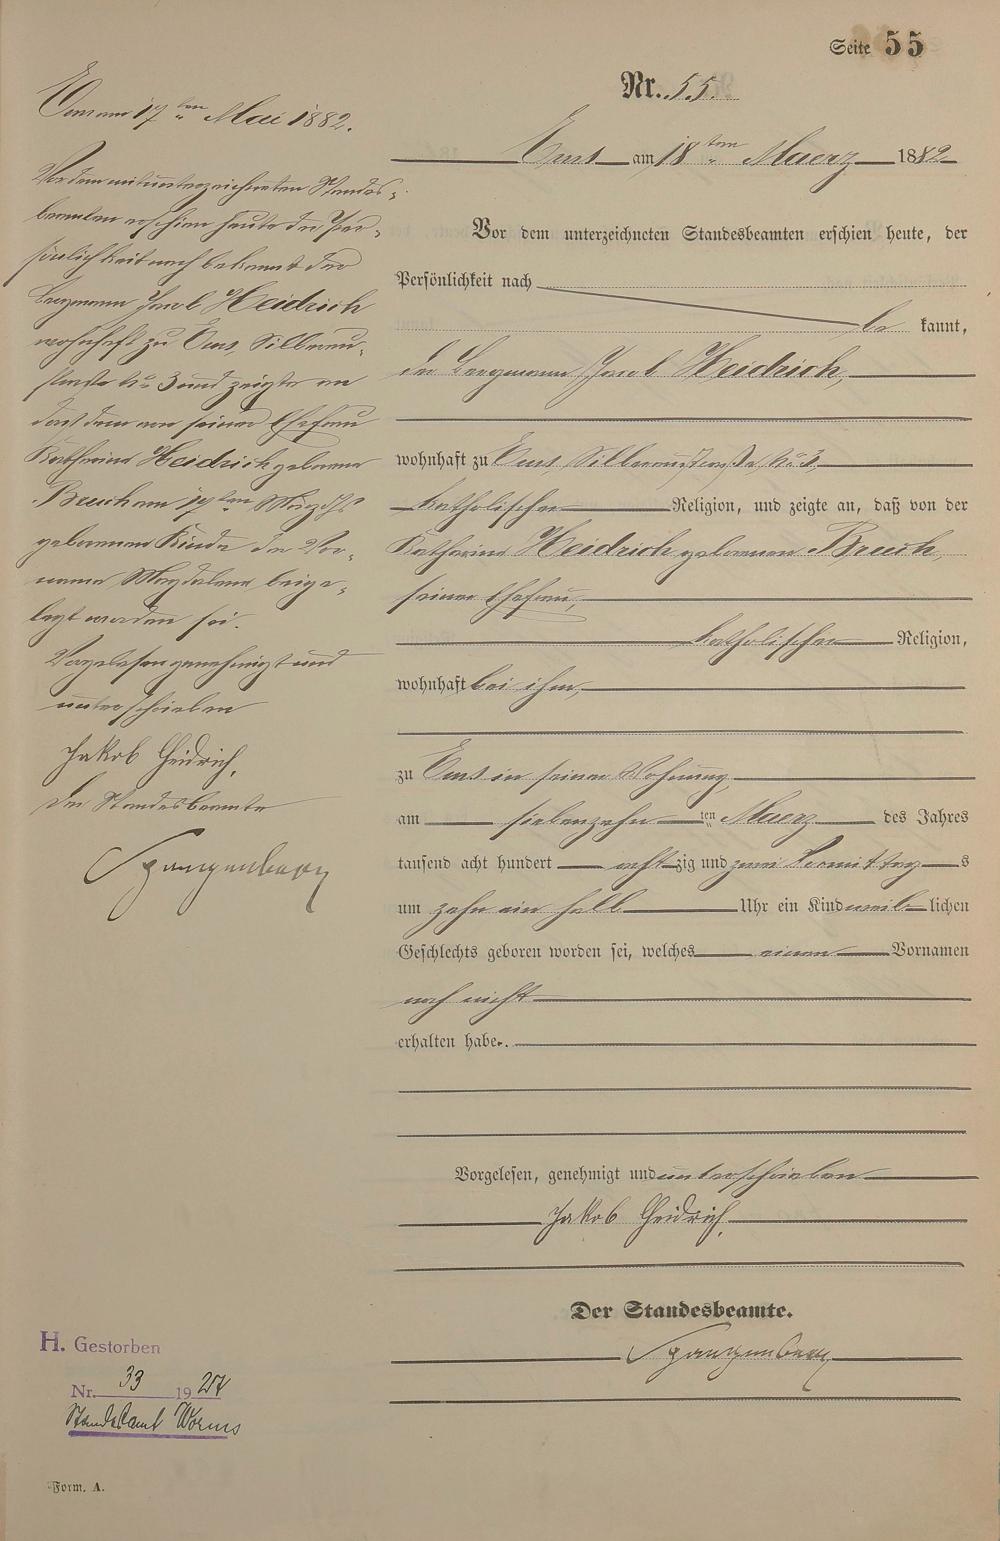 Seite 55
Nr. 55.
Ems am 18ten Maerz 1882
Vor dem unterzeichneten Standesbeamten erschien heute, der
Persönlichkeit nach
be kannt,
der Bergmann Jacob Heidrich,
wohnhaft zu Ems Silberaustraße No 3,
katholischer Religion, und zeigte an, daß von der
Katharina Heidrich geborenen Bruch,
seiner Ehefrau,
katholischer Religion,
wohnhaft bei ihm,
zu Ems in seiner Wohnung
am siebenzehn ten Maerz des Jahres
tausend acht hundert achtzig und zwei Vormittags
um zehn ein halb Uhr ein Kind weiblichen
Geschlechts geboren worden sei, welches einen Vornamen
noch nicht
erhalten habe.
Vorgelesen, genehmigt und unterschrieben
Jakob Heidrich,
Der Standesbeamte.
Spangenberg
Ems am 17ten Mai 1882.
Vor dem mitunterzeichneten Standes-
beamten erschien heute der Per-
sönlichkeit nach bekannt der
Bergmann Jacob Heidrich
wohnhaft zu Ems, Silberau-
straße No 3 und zeigte an
daß dem von seiner Ehefrau
Katharina Heidrich geborene
Bruch am 17ten März
geborenen Kinde der Vor-
name Magdalena beige-
legt worden sei.
Vorgelesen genehmigt und
unterschrieben
Jakob Heidrich,
Der Standesbeamte
Spangenberg
H. Gestorben
Nr. 33 1927
Standesamt Worms
Form. A.